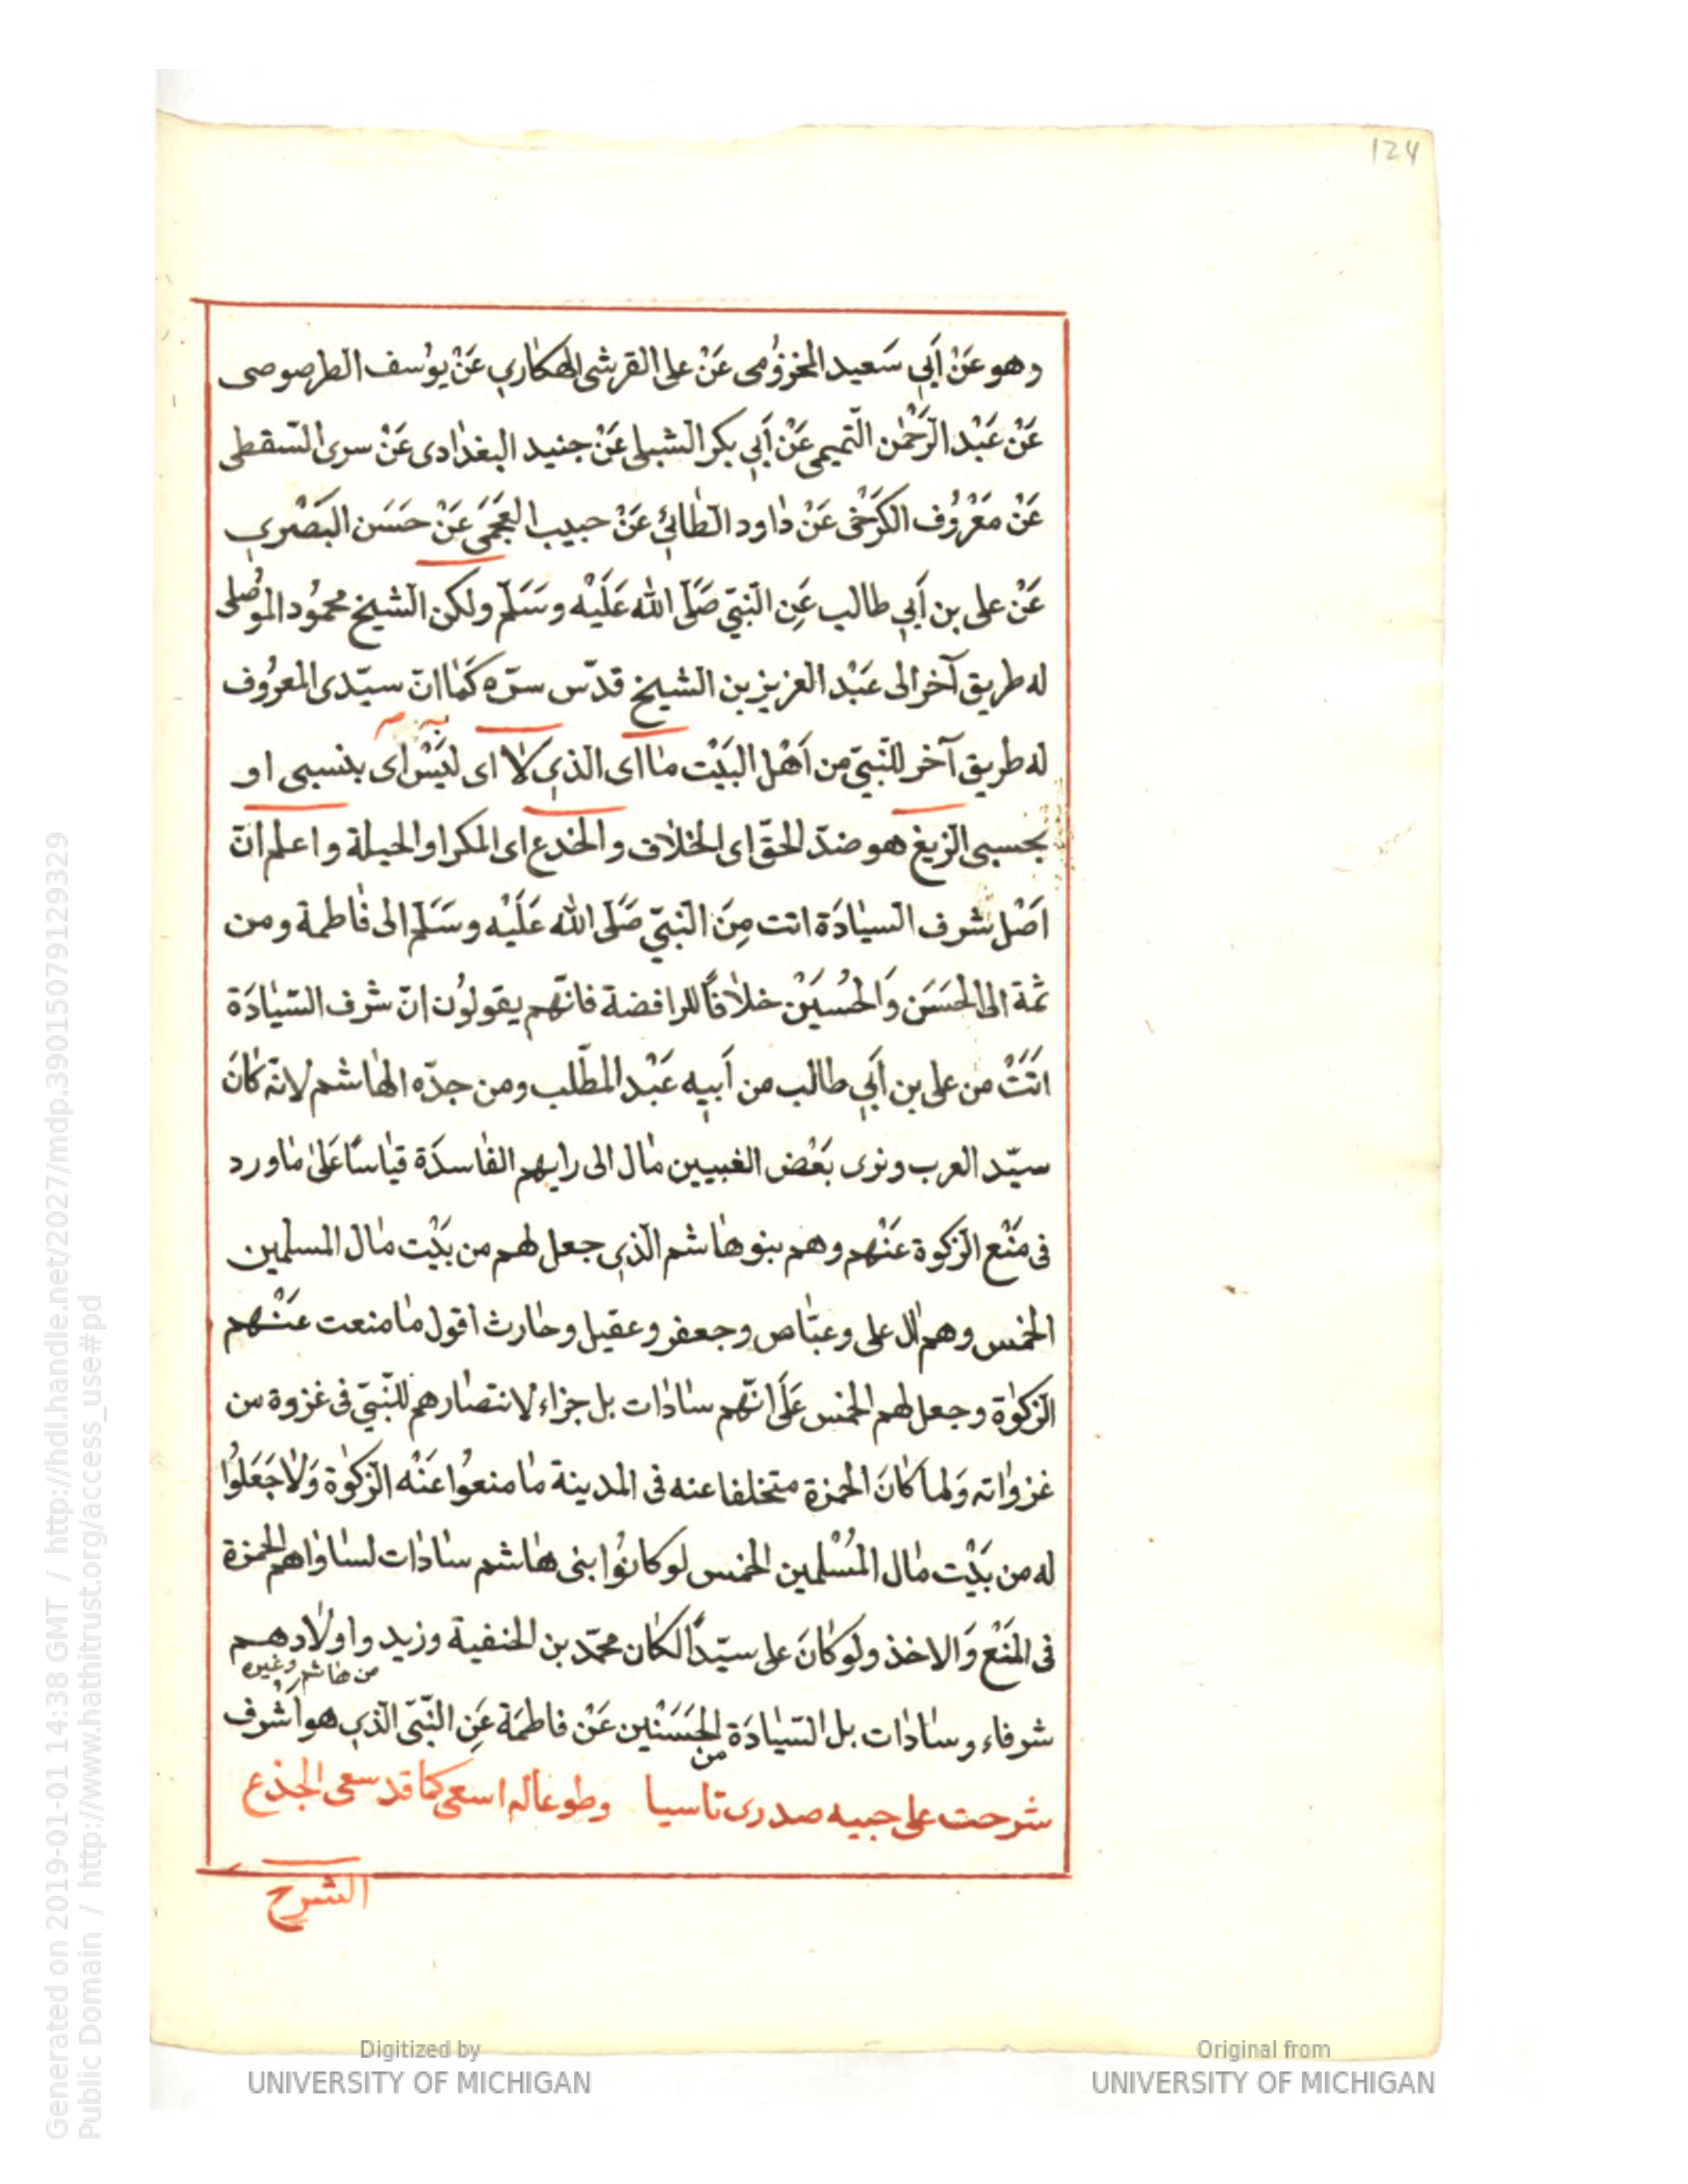 124
وهو عَنْ أَبِي سَعيد المخزوُمى عَنْ على القرشى الهكاري عَنْ يوُسف الطرصوصى
عَنْ عَبْد الرَّحْمٰن التّميمى عَنْ أَبِي بكر الشبلى عَنْ جنيد البغدٰادى عَنْ سرى السّقطى
عَنْ مَعْرُوُف الكَرَخْى عَنْ دٰاود الطٰائِىُ عَنْ حبيب العَجَمَى عَنْ حَسَن البَصْري
عَنْ على بن أَبي طالب عَنِ النّبيّ صَلَّى الله عَلَيْه وسَلَّم ولكن الشيخ محموُد الموُصلى
له طريق آخر الى عَبْد العزيز بن الشيخ قدّس سرّه كَمٰا انّ سيّدى المعرُوف
له طريق آخر للنّبيّ من اَهْل البَيْت مٰا اى الذي لا اى ليَسْ اى بنسبى او
بحسبى الزيغ هو ضدّ الحقّ اى الخلاف والخدع اى المكر او الحيلة واعلم انّ
اَصْل شرف السيٰادَة اتت مِنَ النّبيّ صَلَّى الله عَلَيْه وسَلَّم الى فٰاطمة ومن
ثمة الى الحَسَن وَالحُسَيْن خلاٰفاً للرافضة فانّهم يقولوُن انّ شرف السّيٰادَة
اتَتْ من على بن أَبي طالب من أَبيه عَبْد المطّلب ومن جدّه الهٰاشم لانّه كٰانَ
سيّد العرب ونرى بَعْض الغبيين مٰال الى رايهم الفٰاسدَة قيٰاسًا عَلىٰ مٰاورد
فى مَنْع الزكوة عَنْهم وهم بنو هٰاشم الذي جعل لهم من بَيْت مٰال المسلمين
الخمس وهم اٰل على وعبّاس وجعفر وعقيل وحٰارث اقول مٰا منعت عَنْهم
الزكوٰة وجعل لهم الخمس عَلَى انّهم سٰادٰات بل جزاء لانتصٰارهم للنّبيّ فى غزوة من
غزوٰاته وَلما كٰانَ الحمزة متخلفا عنه فى المدينة مٰا منعوُا عَنْه الزكوٰة وَلاٰ جَعَلوُا
له من بَيْت مٰال المُسْلمين الخمس لو كانوُا بنى هٰاشم سٰادٰات لسٰاوٰاهم الحمزة
فى المَنْع وَالاخذ ولو كٰانَ على سيّدًا لكٰان محمّد بن الحنفية وزيد واولاٰدهم
من هٰاشم وغيره
شرفاء وسٰادٰات بل السّيٰادَة من الحَسَنْين عَنْ فاطمَة عَنِ النّبّى الذي هو اَشُرف
شرحت على جبيه صدرى تاسيا وطوعا له اسعى كما قد سعى الجذع
الشرح
Generated on 2019-01-01 14:38 GMT / http://hdl.handle.net/2027/mdp.39015079129329
Public Domain / http://www.hathitrust.org/access_use#pd
Digitized by
UNIVERSITY OF MICHIGAN
Original from
UNIVERSITY OF MICHIGAN